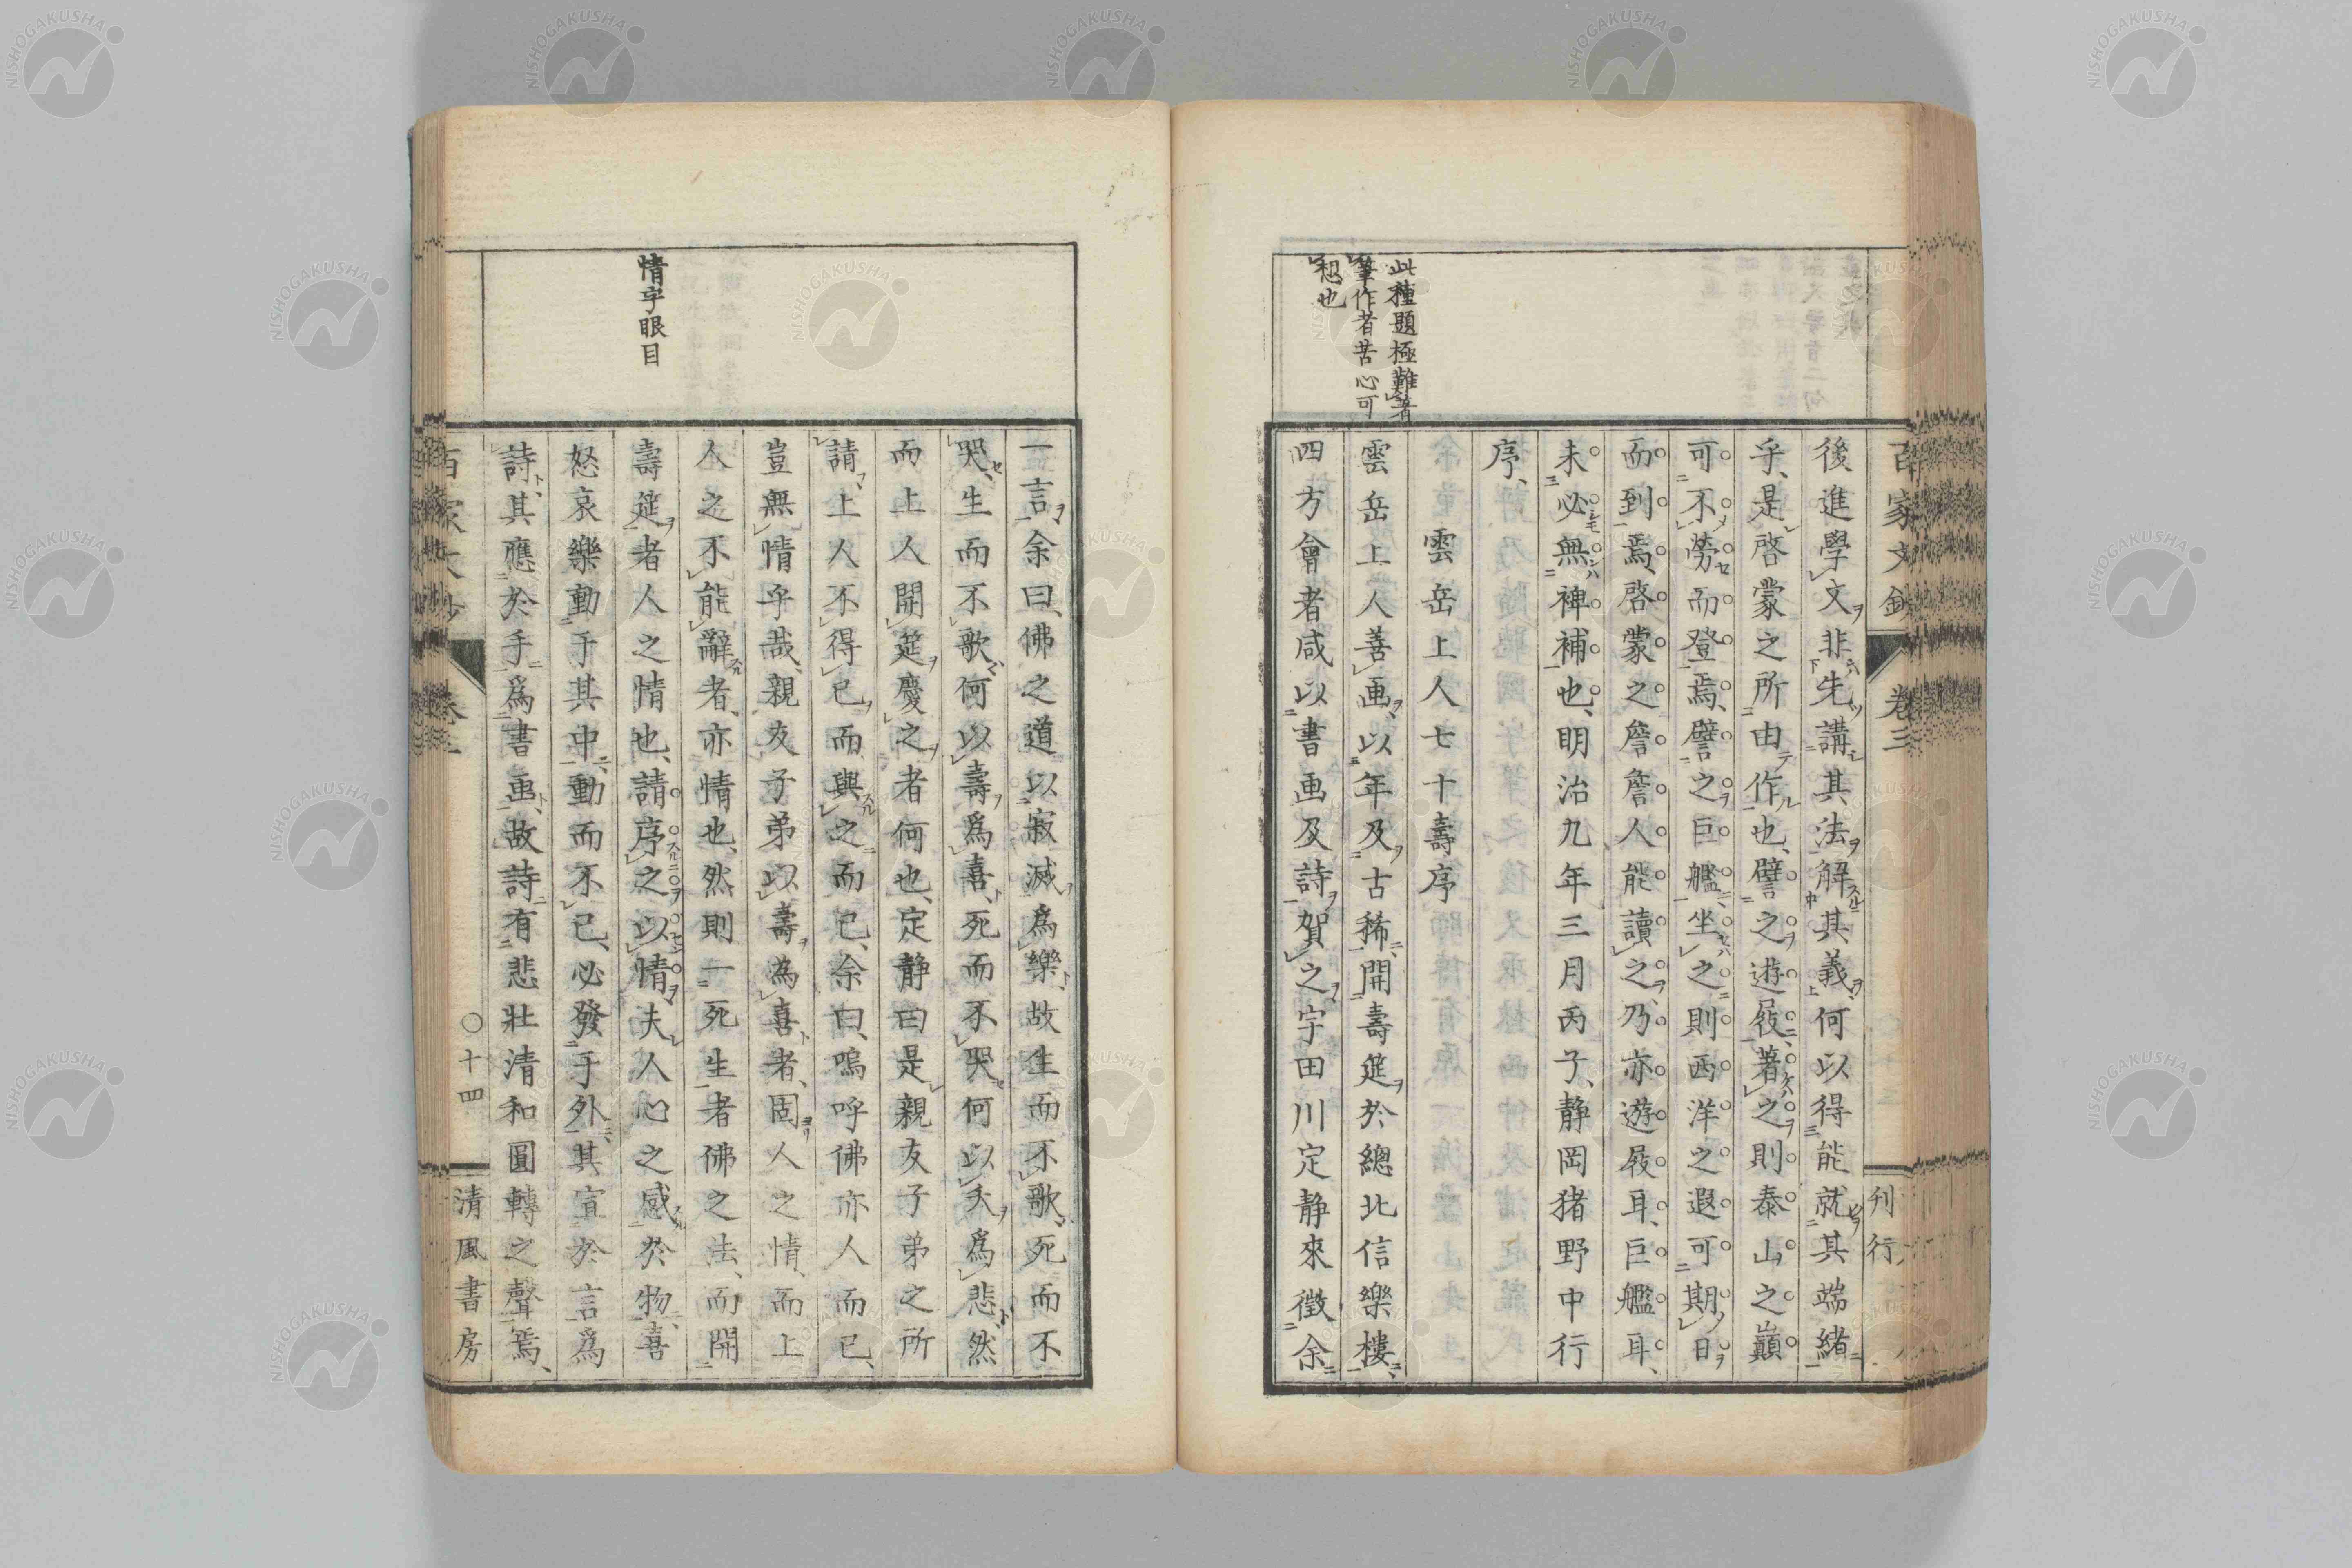 百家文鈔
卷三
刊行
後進學文非先講其法解其義何以得能就其端緒
乎、是啓蒙之所由作也、譬之遊屐著之則泰山之巓
可不勞而登焉、譬之巨艦坐之則西洋之遐可期日
而到焉、啓蒙之詹詹人能讀之乃亦遊屐耳、巨艦耳、
未必無裨補也、明治九年三月丙子、静岡猪野中行
序、
雲岳上人七十壽序
此種題極難著
筆作者苦心可
想也
雲岳上人善画、以年及古稀、開壽筵於總北信樂樓、
四方會者咸以書画及詩賀之宇田川定静來徴余
一言、余曰、佛之道以寂滅爲樂、故生而不歌、死而不
哭、生而不歌、何以壽爲喜、死而不哭、何以夭爲悲、然
而上人開筵慶之者何也、定静曰是親友子弟之所
請、上人不得已而與之而已、余曰、嗚呼佛亦人而已、
豈無情乎哉、親友子弟以壽為喜者、固人之情、而上
人之不能辭者、亦情也、然則一死生者佛之法、而開
情字眼目
壽筵者人之情也、請序之以情夫人心之感於物、喜
怒哀樂動于其中、動而不已、必發于外、其宣於言爲
詩、其應於手爲書画、故詩有悲壯清和圓轉之聲焉、
百家文鈔
卷三
〇十四
清風書房
NISHOGAKUSHA